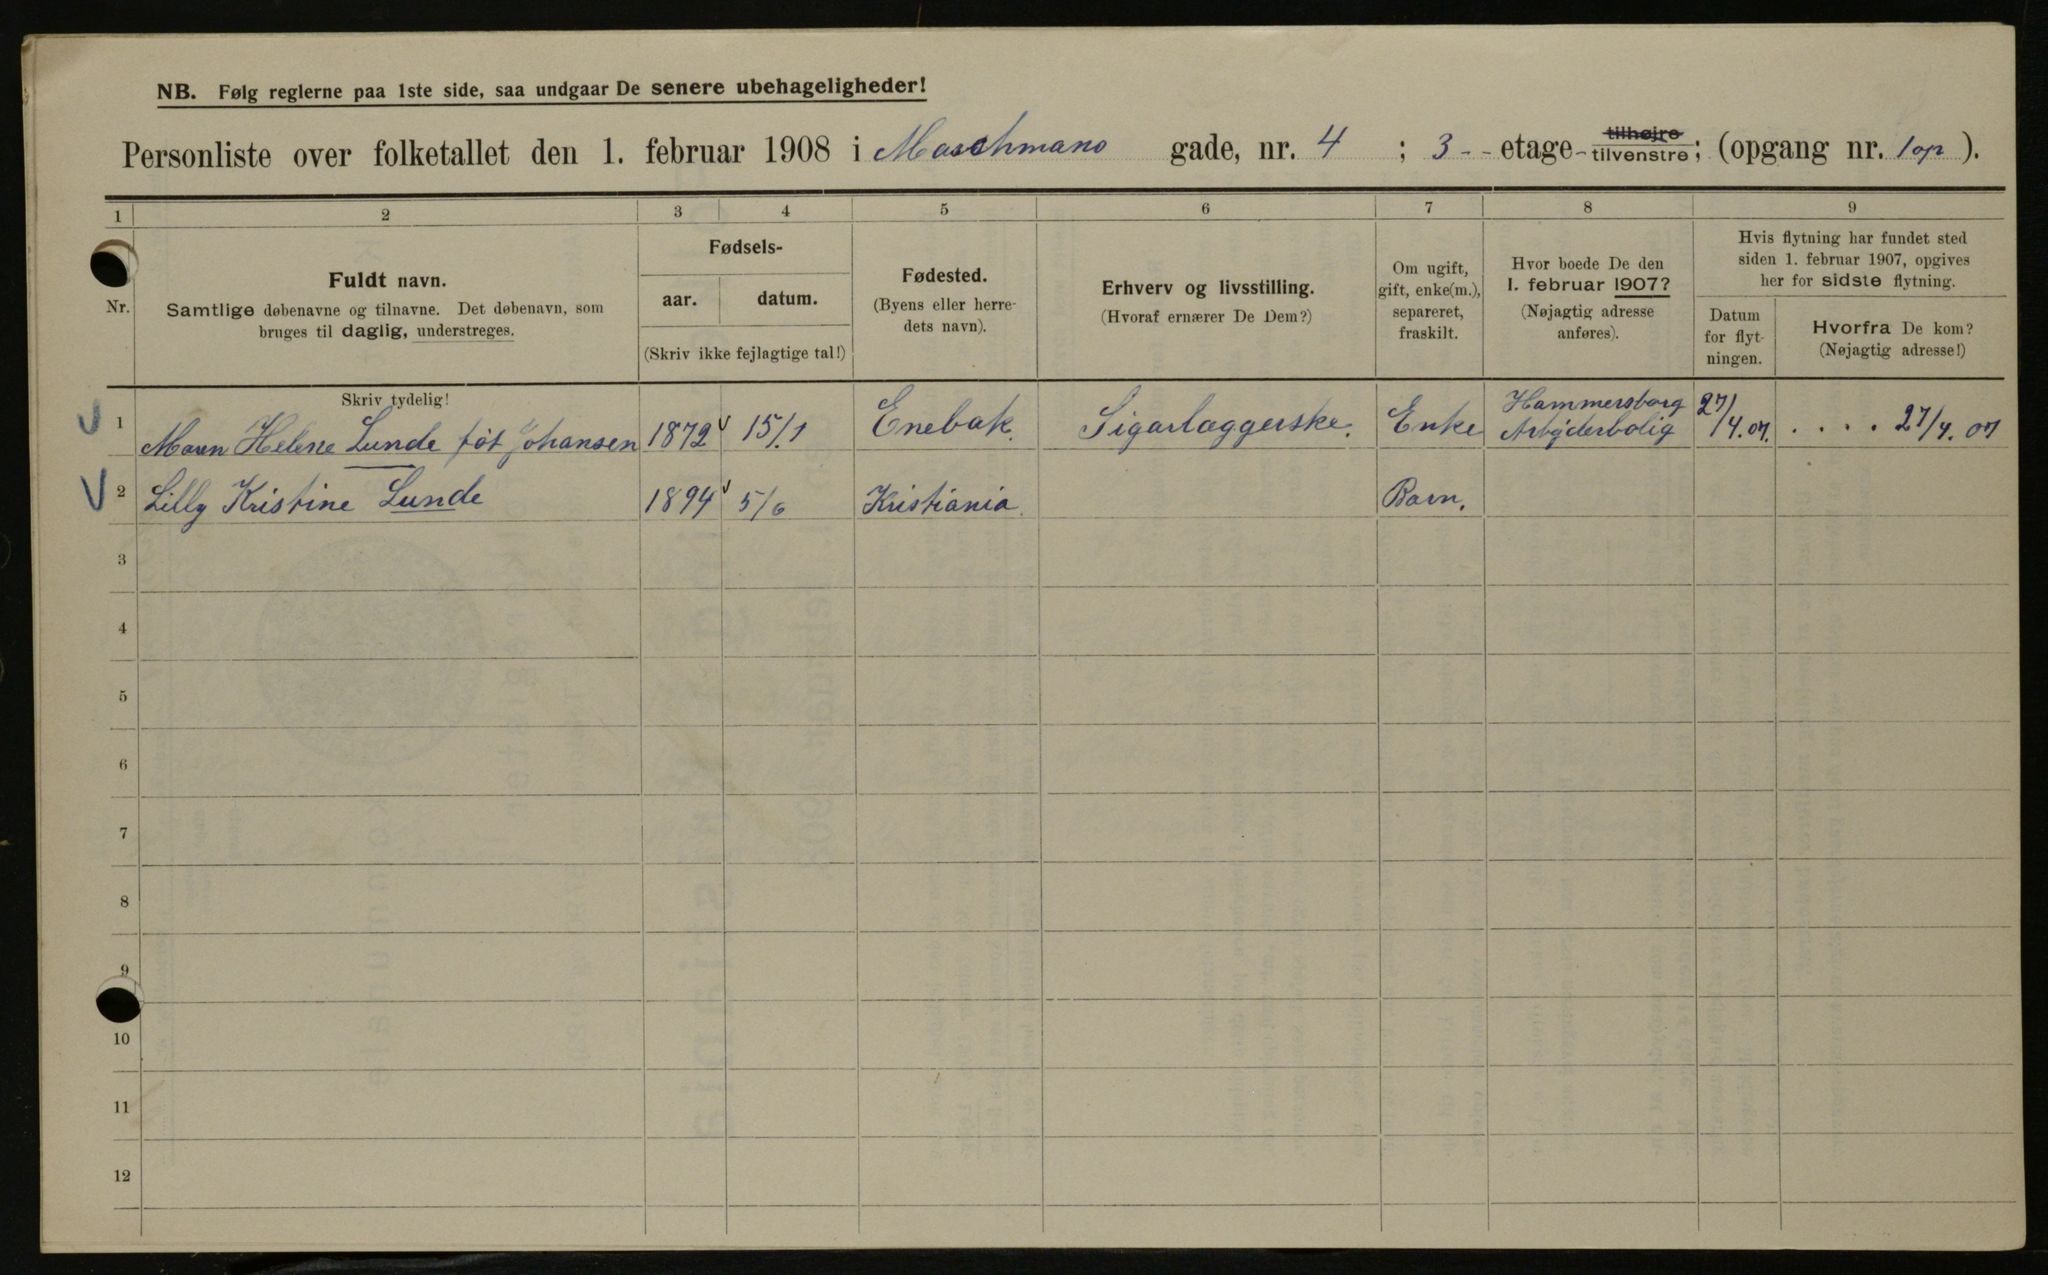 NB. Følg reglerne paa 1ste side, saa undgaar De senere ubehageligheder!
Personliste over folketallet den 1. februar 1908 i Maschmans gade, nr. 4 ; 3 - - etage - tilhøjre tilvenstre; (opgang nr. 1 op ).
1 2 3 4 5 6 7 8 9
Nr.
Fuldt navn.
Samtlige døbenavne og tilnavne. Det døbenavn, som
bruges til daglig, understreges.
Fødsels-
aar. datum.
(Skriv ikke fejlagtige tal!)
Fødested.
(Byens eller herre-
dets navn).
Erhverv og livsstilling.
(Hvoraf ernærer De Dem?)
Om ugift,
gift, enke(m.),
separeret,
fraskilt.
Hvor boede De den
1. februar 1907?
(Nøjagtig adresse
anføres).
Hvis flytning har fundet sted
siden 1. februar 1907, opgives
her for sidste flytning.
Datum
for flyt-
ningen.
Hvorfra De kom?
(Nøjagtig adresse!)
Skriv tydelig!
1 Maren Helene Lunde føt Johansen 1872 15/1 Enebak. Sigarlæggerske. Enke Hammersborg
Arbejderbolig 27/4.07. . . . . 27/4. 07
2 Lilly Kristine Lunde 1894 5/6 Kristiania. Barn.
3
4
5
6
7
8
9
10
11
12